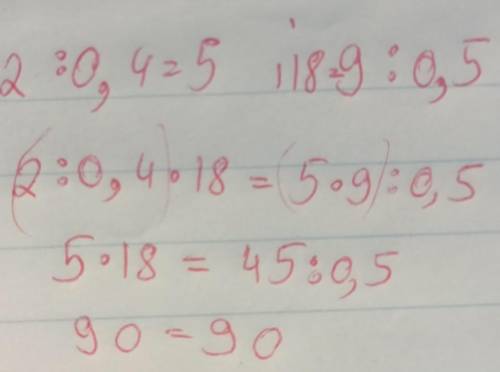 2 : 0,4 = 5 i 18 = 9 : 0,5
(2 : 0,4) · 18 = (5 · 9) : 0,5
5 · 18 = 45 : 0,5
90 = 90